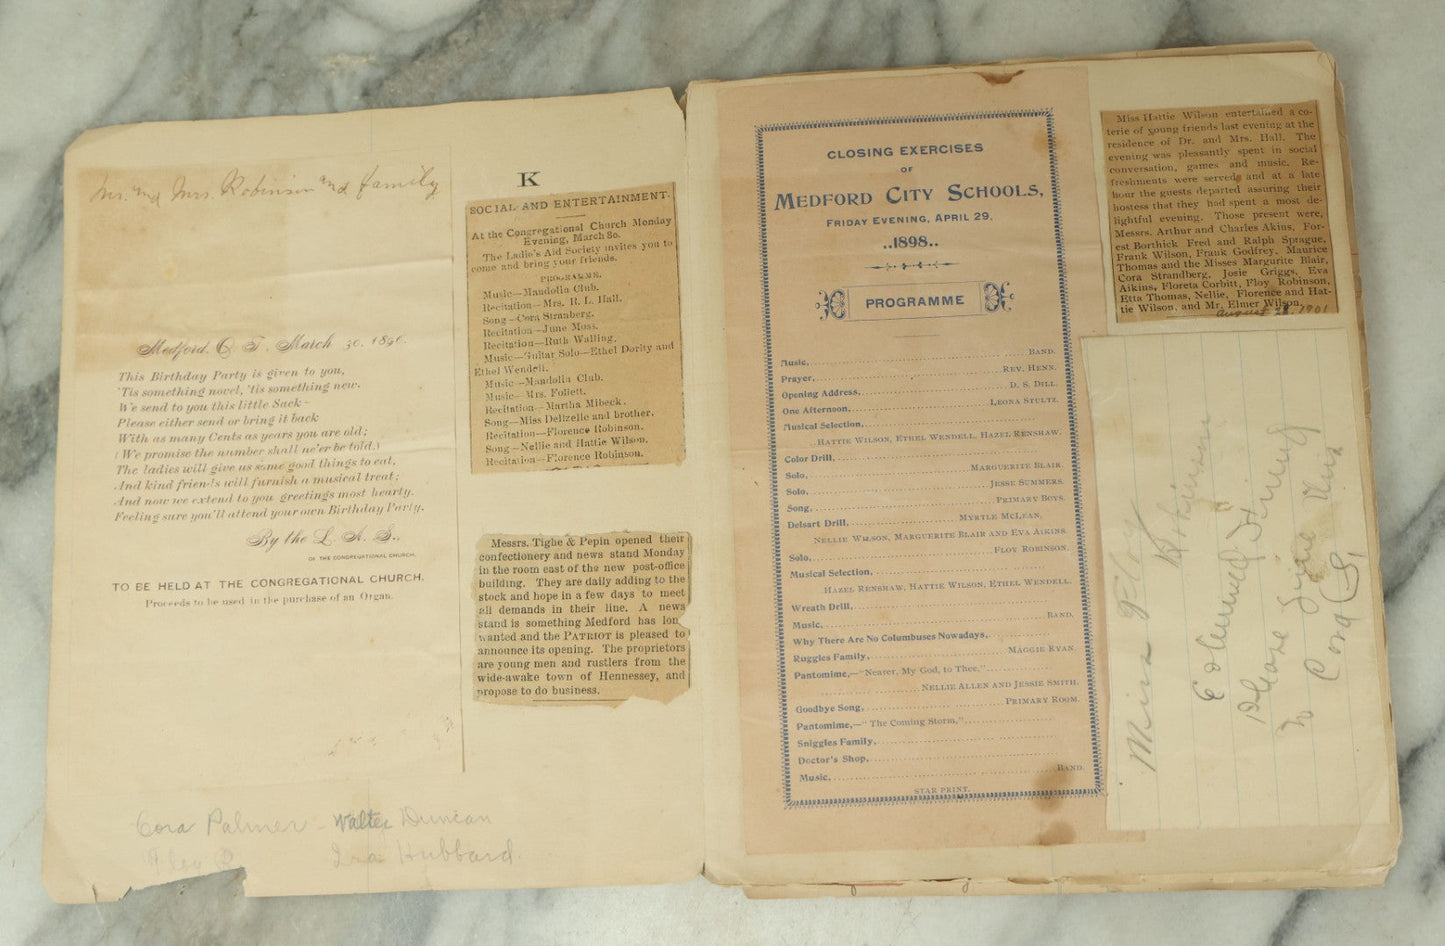 Mr. and Mrs Robinson and family
Medford. O. T. March 30. 1896.
This Birthday Party is given to you,
'Tis something novel, 'tis something new.
We send to you this little Sack—
Please either send or bring it back
With as many Cents as years you are old;
(We promise the number shall ne'er be told.)
The ladies will give us some good things to eat,
And kind friends will furnish a musical treat;
And now we extend to you greetings most hearty.
Feeling sure you'll attend your own Birthday Party.
By the L. A. S..
OF THE CONGREGATIONAL CHURCH.
TO BE HELD AT THE CONGREGATIONAL CHURCH.
Proceeds to be used in the purchase of an Organ.
Cora Palmer - Walter Duncan
Floy R
Ira Hubbard.
K
SOCIAL AND ENTERTAINMENT.
At the Congregational Church Monday
Evening, March 30.
The Ladie's Aid Society invites you to
come and bring your friends.
PROGRAMME.
Music—Mandolia Club.
Recitation—Mrs. R. L. Hall.
Song—Cora Stranberg.
Recitation—June Moss.
Recitation—Ruth Walling.
Music—Guitar Solo—Ethel Dority and
Ethel Wendell.
Music—Mandolia Club.
Music—Mrs. Follett.
Recitation—Martha Mibeck.
Song—Miss Delizelle and brother.
Recitation—Florence Robinson.
Song—Nellie and Hattie Wilson.
Recitation—Florence Robinson.
Messrs. Tighe & Pepin opened their
confectionery and news stand Monday
in the room east of the new post-office
building. They are daily adding to the
stock and hope in a few days to meet
all demands in their line. A news
stand is something Medford has lon
wanted and the PATRIOT is pleased to
announce its opening. The proprietors
are young men and rustlers from the
wide-awake town of Hennessey, and
propose to do business.
CLOSING EXERCISES
OF
MEDFORD CITY SCHOOLS,
FRIDAY EVENING, APRIL 29,
..1898..
PROGRAMME
Music, BAND.
Prayer, REV. HENN.
Opening Address, D. S. DILL.
One Afternoon, LEONA STULTZ.
Musical Selection,
HATTIE WILSON, ETHEL WENDELL, HAZEL RENSHAW.
Color Drill,
Solo, MARGUERITE BLAIR.
Solo, JESSE SUMMERS.
Song, PRIMARY BOYS.
Delsart Drill, MYRTLE MCLEAN,
NELLIE WILSON, MARGUERITE BLAIR AND EVA AIKINS.
Solo, FLOY ROBINSON.
Musical Selection,
HAZEL RENSHAW, HATTIE WILSON, ETHEL WENDELL.
Wreath Drill,
Music, BAND.
Why There Are No Columbuses Nowadays,
Ruggles Family, MAGGIE RYAN.
Pantomime,—"Nearer, My God, to Thee,"
NELLIE ALLEN AND JESSIE SMITH.
Goodbye Song, PRIMARY ROOM.
Pantomime,—"The Coming Storm,"
Sniggles Family,
Doctor's Shop,
Music, BAND.
STAR PRINT.
Miss Hattie Wilson entertained a co-
terie of young friends last evening at the
residence of Dr. and Mrs. Hall. The
evening was pleasantly spent in social
conversation, games and music. Re-
freshments were served and at a late
hour the guests departed assuring their
hostess that they had spent a most de-
lightful evening. Those present were,
Messrs. Arthur and Charles Akins, For-
est Borthick Fred and Ralph Sprague,
Frank Wilson, Frank Godfrey, Maurice
Thomas and the Misses Margurite Blair,
Cora Strandberg, Josie Griggs, Eva
Aikins, Floreta Corbitt, Floy Robinson,
Etta Thomas, Nellie, Florence and Hat-
tie Wilson, and Mr. Elmer Wilson.
August 28, 1901
Miss Floy
Robinson
Please give this
to Cora S,